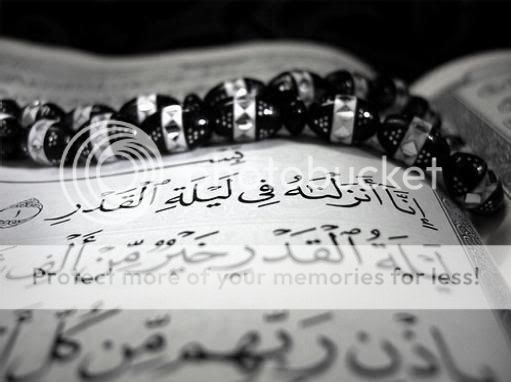 إِنَّا أَنزَلْنَٰهُ فِى لَيْلَةِ ٱلْقَدْرِ ١
photobucket
لَيْلَةُ ٱلْقَدْرِ خَيْرٌ مِّنْ أَلْفِ
Protect more of your memories for less!
بِإِذْنِ رَبِّهِم مِّن كُلِّ